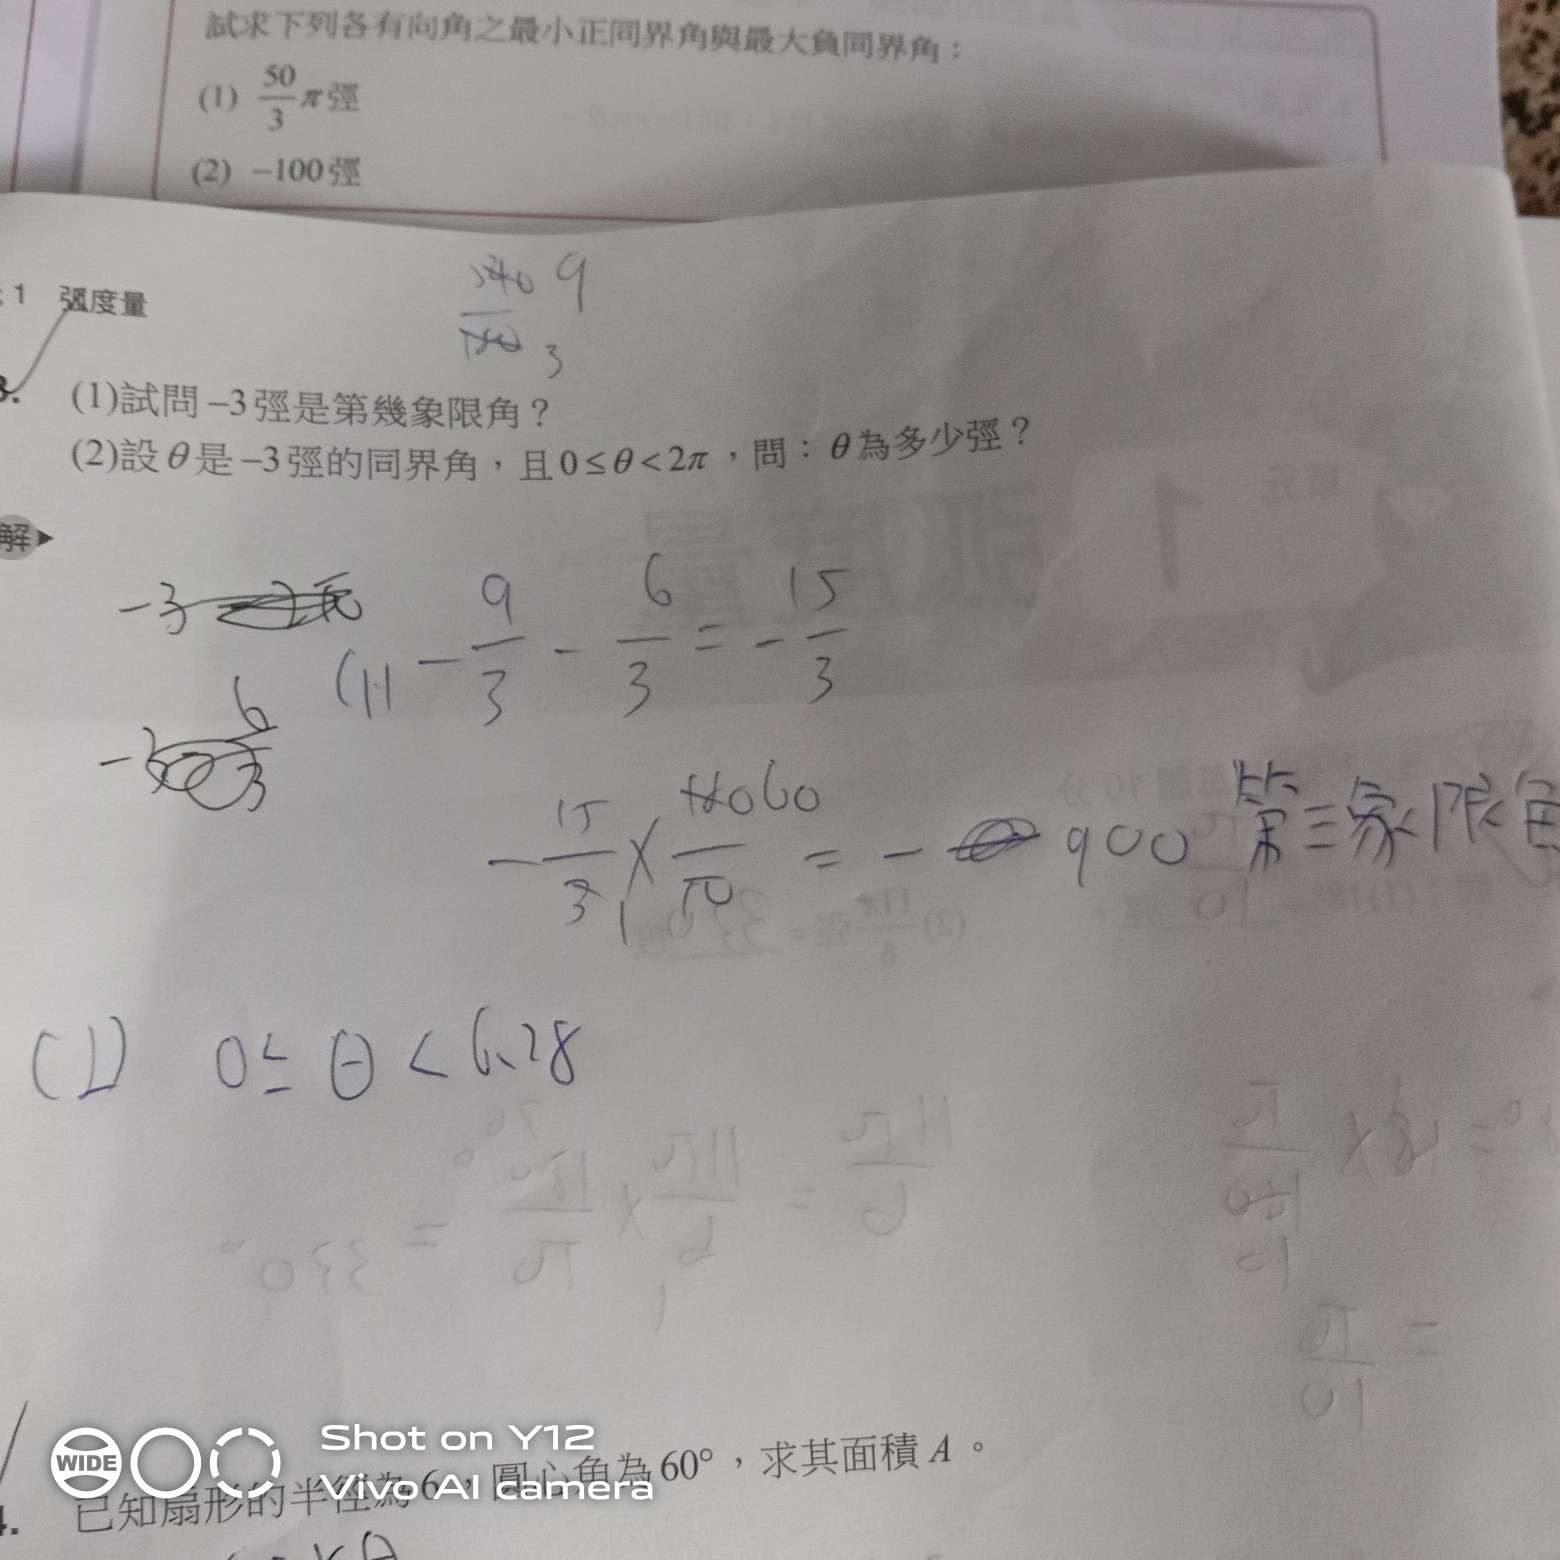 試求下列各有向角之最小正同界角與最大負同界角：
(1) 50/3 π 弳
(2) −100 弳
1 弧度量
9
3
3. (1)試問 −3 弳是第幾象限角？
(2)設 θ 是 −3 弳的同界角，且 0 ≤ θ < 2π，問：θ 為多少弳？
解
−3
(1) − 9/3 − 6/3 = − 15/3
− 15/3 × 60/π = − 900 第三象限角
(2) 0 ≤ θ < 6.28
4. 已知扇形的半徑為 6，圓心角為 60°，求其面積 A。
WIDE
Shot on Y12
Vivo AI camera